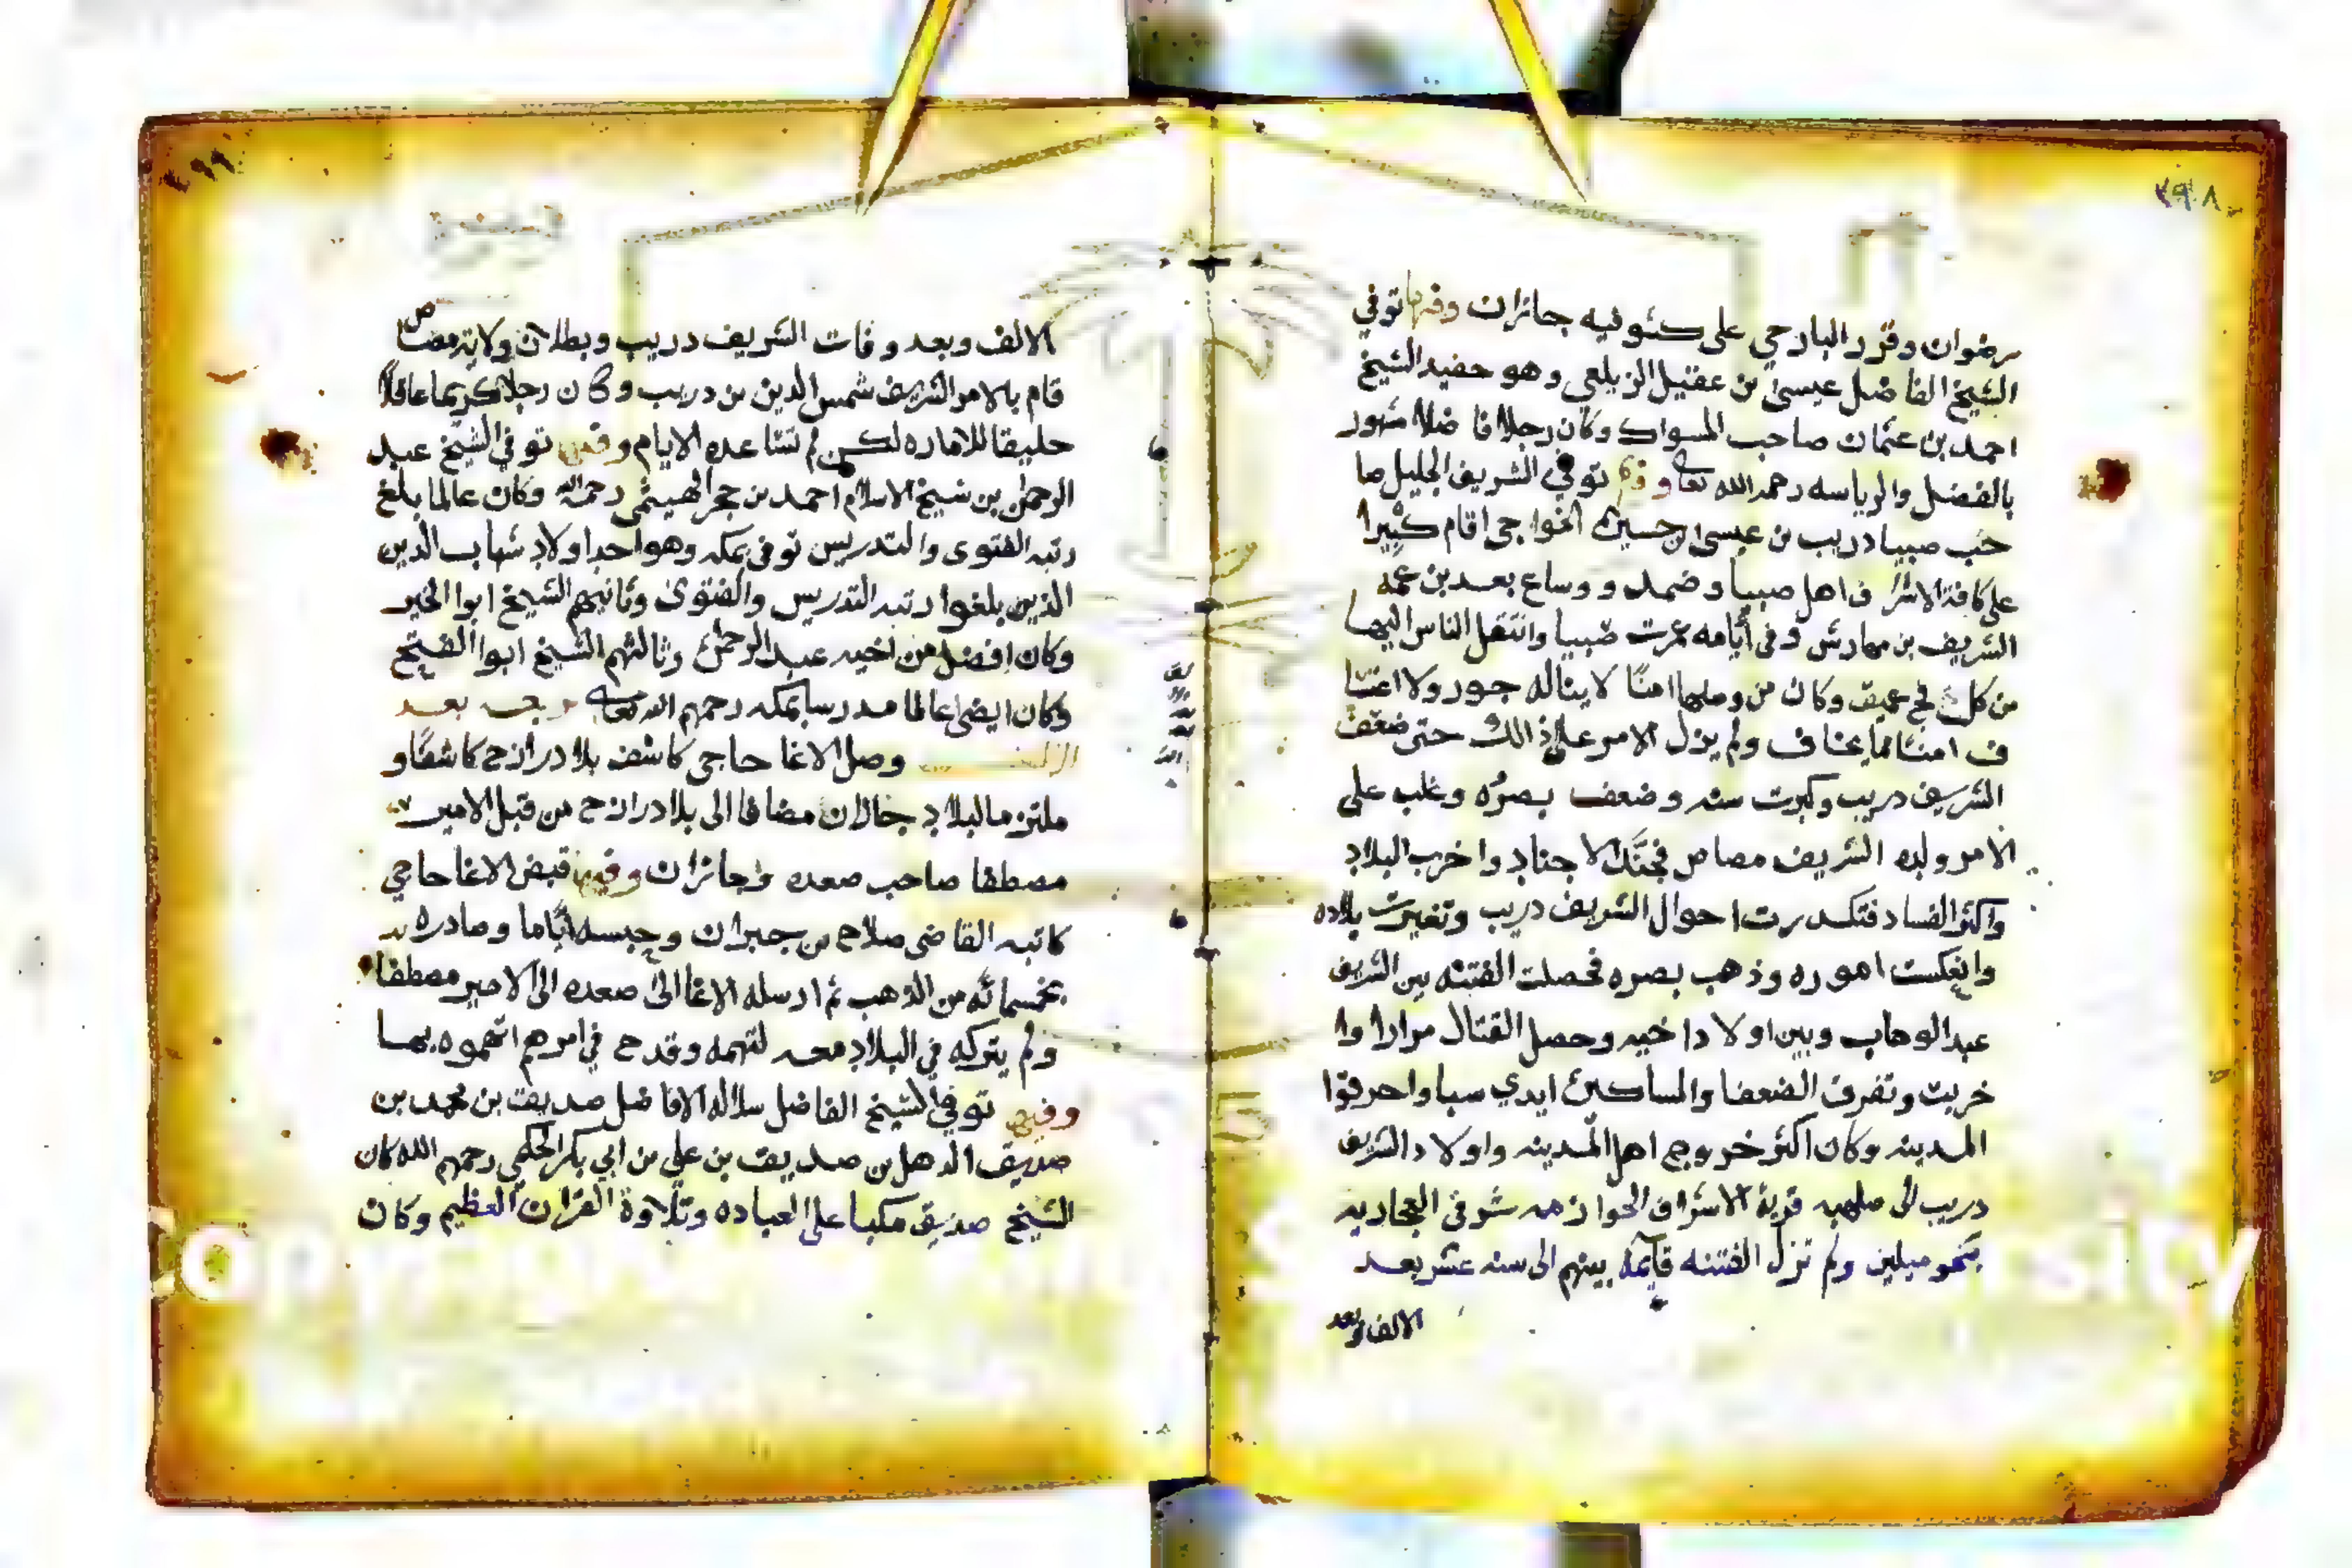 ٢٩٨
رضوان وقرر البارحي على كشوفيه جازان وفيها توفي
الشيخ الفاضل عيسى بن عقيل الزيلعي وهو حفيد الشيخ
احمد بن عثمان صاحب المسواك وكان رجلا فاضلا مشهور
بالفضل والرياسه رحمه الله تعا وفيها توفي الشريف الجليل صا
حب صبيا دريب بن عيسى بن حسين الخواجي اقام كثيرا
على كافة الاشراف اهل صبيا وضمد ووساع بعد بن عمه
الشريف بن مهارش وفي أيامه عمرت صبيا وانتقل الناس اليها
من كل فج عميق وكان من وصلها امنًا لا يناله جور ولا اعتسا
ف امنا مما يخاف ولم يزل الامر على ذالك حتى ضعف
الشريف دريب وكبرت سنه وضعف بصره وغلب على
الامر ولده الشريف مصاص فجنَّد الاجناد واخرب البلاد
واكثر الفساد فتكدرت احوال الشريف دريب وتغيرت بلاده
وانعكست اموره وذهب بصره فحصلت الفتنه بين الشريف
عبد الوهاب وبين اولاد اخيه وحصل القتال مرارا وا
خربت وتفرق الضعفا والمساكين ايدي سبا واحرقوا
المدينه وكان اكثر خروج اهل المدينه واولاد الشريف
دريب الى صلهبه قرية الاشراف الحوازمه شرقي
بنحو ميلين ولم تزل الفتنه قايمة بينهم الى سنه عشر بعد
الالف وبعد
٢٩٩
الالف وبعد وفات الشريف دريب وبطلان ولاية مصاص
قام بالامر الشريف شمس الدين بن دريب وكان رجلا كريما عاقلاً
حليقا للاماره لكن لم تساعده الايام وفيها توفي الشيخ عبد
الرحمن بن شيخ الاسلام احمد بن حجر الهيتمي رحمه الله وكان عالما بلغ
رتبه الفتوى والتدريس توفي بمكه وهو احد اولاد شهاب الدين
الذين بلغوا رتبه التدريس والفتوى وثانيهم الشيخ ابوا الخير
وكان افضل من اخيه عبد الرحمن وثالثهم الشيخ ابوا الفتح
وكان ايضا عالما مدرسا بمكه رحمهم الله تعا بعد
الالف وصل الاغا حاجي كاشف بلاد رازح كاشفًا و
ملتزما لبلاد جازان مضافا الى بلاد رازح من قبل الامير
مصطفا صاحب صعده وجازان وفيها قبض الاغا حاجي
كاتبه القاضي صلاح بن جبران وحبسه أيّاما وصادره
بخمسمائه من الذهب ثم ارسله الاغا الى صعده الى الامير مصطفا
ولم يتركه في البلاد معه لتهمه وقدح في امرهم اتهموه بها
وفيها توفي الشيخ الفاضل سلاله الافاضل صديق بن محمد بن
صديق الدهل بن صديق بن علي بن ابي بكر الحكمي رحمهم الله كان
الشيخ صديق مكبا على العباده وتلاوة القران العظيم وكان